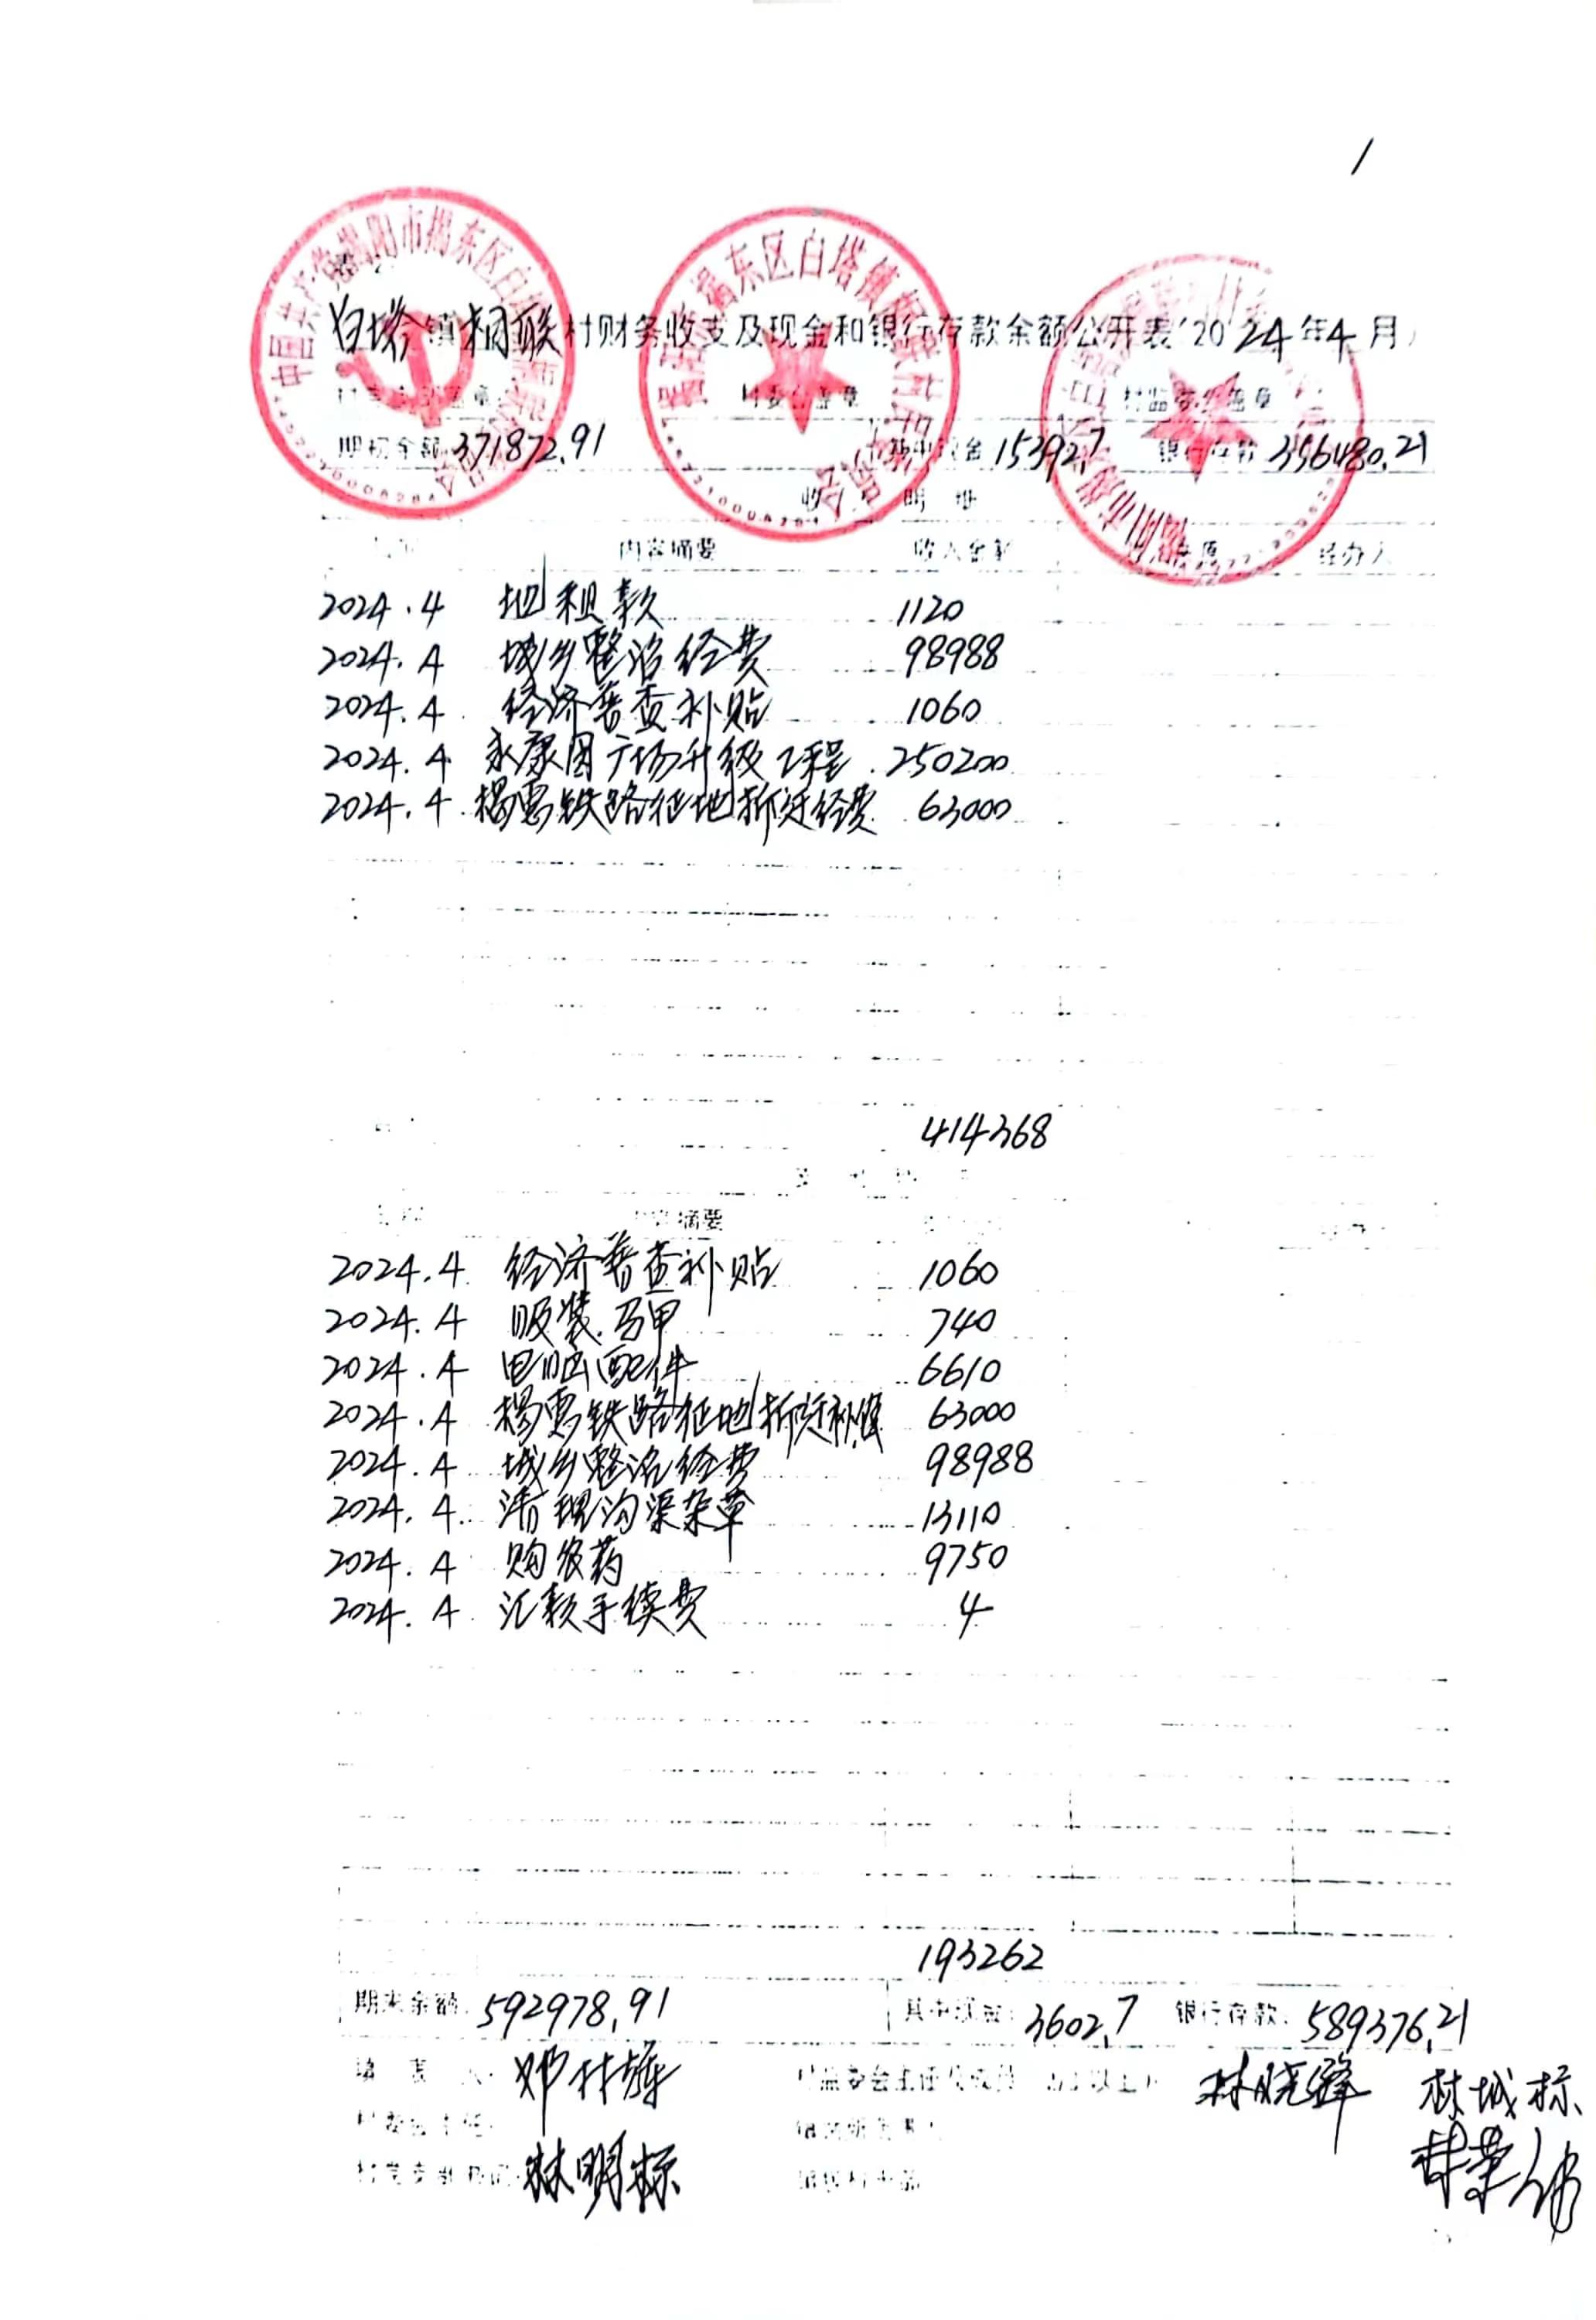 1
白塔镇桐联村财务收支及现金和银行存款余额公开表(2024年4月)
村委会盖章 村监委会盖章
期初余额 371872.91 其中现金 15392.7 银行存款 356480.21
收 明 细
内容摘要 收入金额 来源 经办人
2024.4 地租款 1120
2024.4 城乡整治经费 98988
2024.4 经济普查补贴 1060
2024.4 永康园广场升级工程 250200
2024.4 揭惠铁路征地拆迁经费 63000
414368
摘要
2024.4 经济普查补贴 1060
2024.4 服装.马甲 740
2024.4 电脑配件 6610
2024.4 揭惠铁路征地拆迁补偿 63000
2024.4 城乡整治经费 98988
2024.4 清理沟渠杂草 13110
2024.4 购农药 9750
2024.4 汇款手续费 4
193262
期末余额: 592978.91 其中现金: 3602.7 银行存款: 589376.21
填表人: 村监委会主任及成员 林晓锋 林城标
林明标